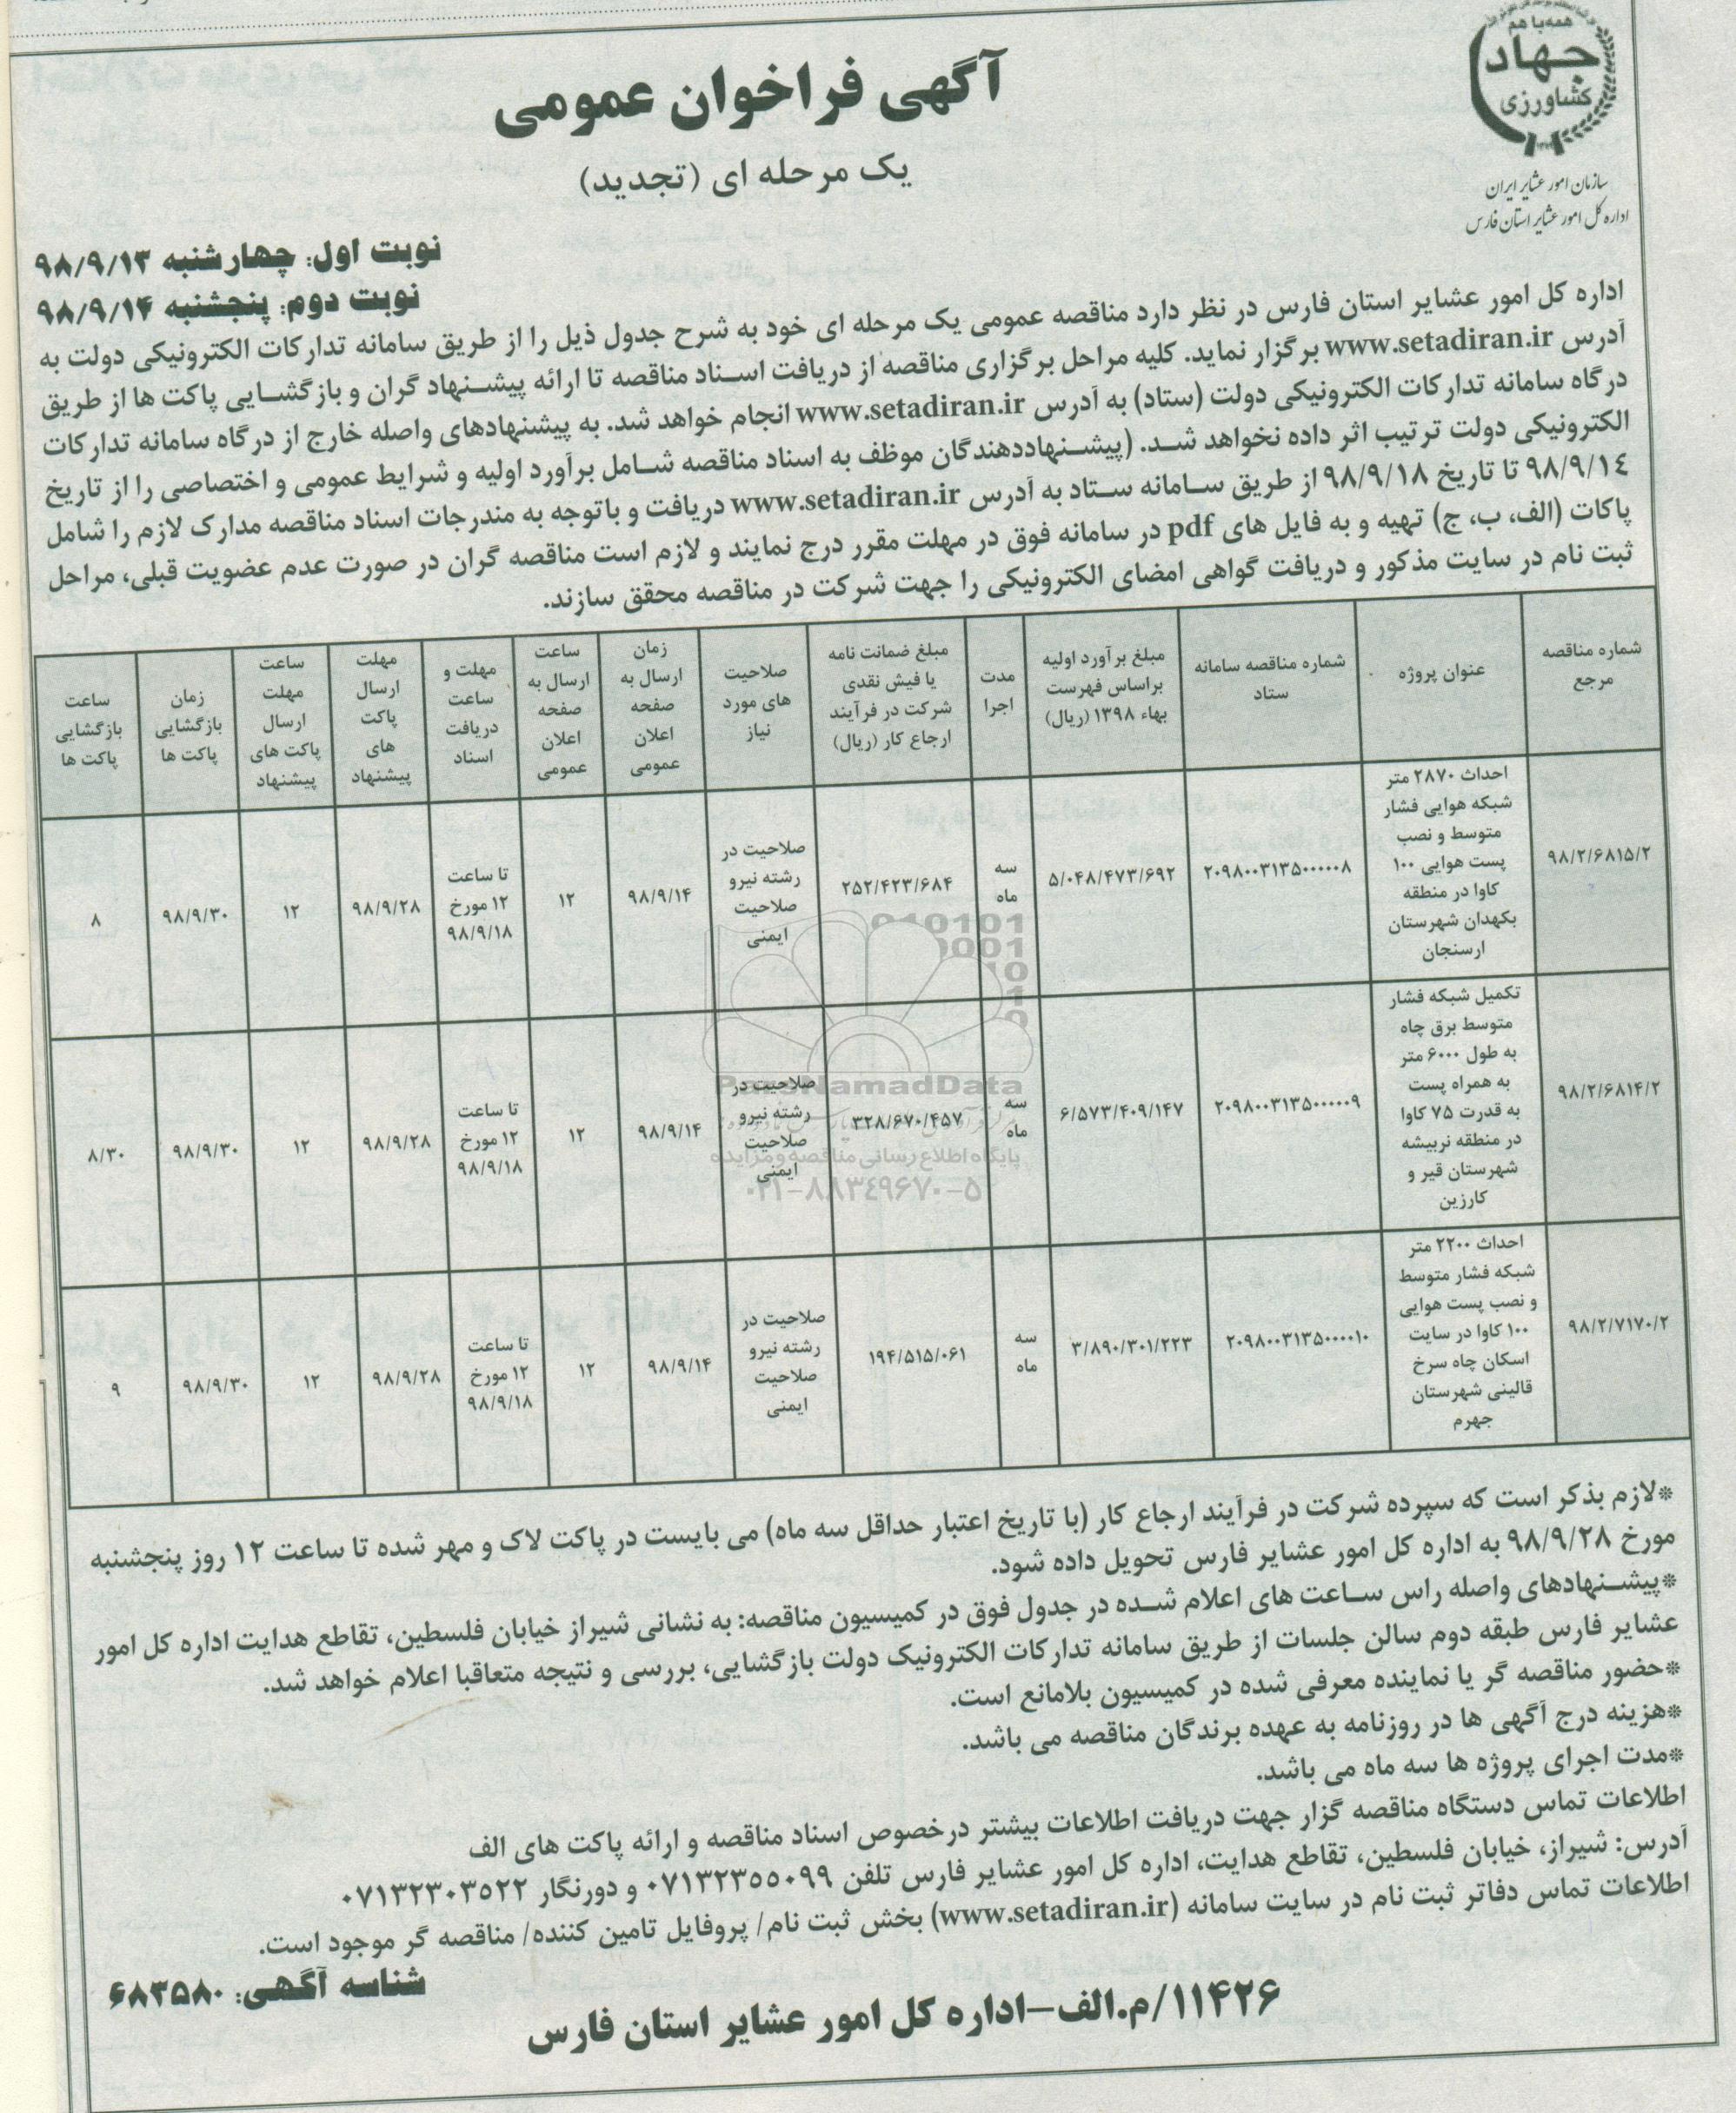 همه با هم
جهاد
کشاورزی
سازمان امور عشایر ایران
اداره کل امور عشایر استان فارس
آگهی فراخوان عمومی
یک مرحله ای (تجدید)
نوبت اول: چهارشنبه ۹۸/۹/۱۳
نوبت دوم: پنجشنبه ۹۸/۹/۱۴
اداره کل امور عشایر استان فارس در نظر دارد مناقصه عمومی یک مرحله ای خود به شرح جدول ذیل را از طریق سامانه تدارکات الکترونیکی دولت به
آدرس www.setadiran.ir برگزار نماید. کلیه مراحل برگزاری مناقصه از دریافت اسناد مناقصه تا ارائه پیشنهاد گران و بازگشایی پاکت ها از طریق
درگاه سامانه تدارکات الکترونیکی دولت (ستاد) به آدرس www.setadiran.ir انجام خواهد شد. به پیشنهادهای واصله خارج از درگاه سامانه تدارکات
الکترونیکی دولت ترتیب اثر داده نخواهد شد. (پیشنهاددهندگان موظف به اسناد مناقصه شامل برآورد اولیه و شرایط عمومی و اختصاصی را از تاریخ
۹۸/۹/۱۴ تا تاریخ ۹۸/۹/۱۸ از طریق سامانه ستاد به آدرس www.setadiran.ir دریافت و باتوجه به مندرجات اسناد مناقصه مدارک لازم را شامل
پاکات (الف، ب، ج) تهیه و به فایل های pdf در سامانه فوق در مهلت مقرر درج نمایند و لازم است مناقصه گران در صورت عدم عضویت قبلی، مراحل
ثبت نام در سایت مذکور و دریافت گواهی امضای الکترونیکی را جهت شرکت در مناقصه محقق سازند.
شماره مناقصه مرجع | عنوان پروژه | شماره مناقصه سامانه ستاد | مبلغ برآورد اولیه براساس فهرست بهاء ۱۳۹۸ (ریال) | مدت اجرا | مبلغ ضمانت نامه یا فیش نقدی شرکت در فرآیند ارجاع کار (ریال) | صلاحیت های مورد نیاز | زمان ارسال به صفحه اعلان عمومی | ساعت ارسال به صفحه اعلان عمومی | مهلت و ساعت دریافت اسناد | مهلت ارسال پاکت های پیشنهاد | ساعت مهلت ارسال پاکت های پیشنهاد | زمان بازگشایی پاکت ها | ساعت بازگشایی پاکت ها
۹۸/۲/۶۸۱۵/۲ | احداث ۲۸۷۰ متر شبکه هوایی فشار متوسط و نصب پست هوایی ۱۰۰ کاوا در منطقه بکهدان شهرستان ارسنجان | ۲۰۹۸۰۰۳۱۳۵۰۰۰۰۰۸ | ۵/۰۴۸/۴۷۳/۶۹۲ | سه ماه | ۲۵۲/۴۲۳/۶۸۴ | صلاحیت در رشته نیرو صلاحیت ایمنی | ۹۸/۹/۱۴ | ۱۲ | تا ساعت ۱۲ مورخ ۹۸/۹/۱۸ | ۹۸/۹/۲۸ | ۱۲ | ۹۸/۹/۳۰ | ۸
۹۸/۲/۶۸۱۴/۲ | تکمیل شبکه فشار متوسط برق چاه به طول ۶۰۰۰ متر به همراه پست به قدرت ۷۵ کاوا در منطقه نربیشه شهرستان قیر و کارزین | ۲۰۹۸۰۰۳۱۳۵۰۰۰۰۰۹ | ۶/۵۷۳/۴۰۹/۱۴۷ | سه ماه | ۳۲۸/۶۷۰/۴۵۷ | صلاحیت در رشته نیرو صلاحیت ایمنی | ۹۸/۹/۱۴ | ۱۲ | تا ساعت ۱۲ مورخ ۹۸/۹/۱۸ | ۹۸/۹/۲۸ | ۱۲ | ۹۸/۹/۳۰ | ۸/۳۰
۹۸/۲/۷۱۷۰/۲ | احداث ۲۲۰۰ متر شبکه فشار متوسط و نصب پست هوایی ۱۰۰ کاوا در سایت اسکان چاه سرخ قالینی شهرستان جهرم | ۲۰۹۸۰۰۳۱۳۵۰۰۰۰۱۰ | ۳/۸۹۰/۳۰۱/۲۲۳ | سه ماه | ۱۹۴/۵۱۵/۰۶۱ | صلاحیت در رشته نیرو صلاحیت ایمنی | ۹۸/۹/۱۴ | ۱۲ | تا ساعت ۱۲ مورخ ۹۸/۹/۱۸ | ۹۸/۹/۲۸ | ۱۲ | ۹۸/۹/۳۰ | ۹
ParsNamadData
پایگاه اطلاع رسانی مناقصه و مزایده
۰۲۱-۸۸۳۴۹۶۷۰-۵
*لازم بذکر است که سپرده شرکت در فرآیند ارجاع کار (با تاریخ اعتبار حداقل سه ماه) می بایست در پاکت لاک و مهر شده تا ساعت ۱۲ روز پنجشنبه
مورخ ۹۸/۹/۲۸ به اداره کل امور عشایر فارس تحویل داده شود.
*پیشنهادهای واصله راس ساعت های اعلام شده در جدول فوق در کمیسیون مناقصه: به نشانی شیراز خیابان فلسطین، تقاطع هدایت اداره کل امور
عشایر فارس طبقه دوم سالن جلسات از طریق سامانه تدارکات الکترونیک دولت بازگشایی، بررسی و نتیجه متعاقبا اعلام خواهد شد.
*حضور مناقصه گر یا نماینده معرفی شده در کمیسیون بلامانع است.
*هزینه درج آگهی ها در روزنامه به عهده برندگان مناقصه می باشد.
*مدت اجرای پروژه ها سه ماه می باشد.
اطلاعات تماس دستگاه مناقصه گزار جهت دریافت اطلاعات بیشتر درخصوص اسناد مناقصه و ارائه پاکت های الف
آدرس: شیراز، خیابان فلسطین، تقاطع هدایت، اداره کل امور عشایر فارس تلفن ۰۷۱۳۲۳۵۵۰۹۹ و دورنگار ۰۷۱۳۲۳۰۳۵۲۲
اطلاعات تماس دفاتر ثبت نام در سایت سامانه (www.setadiran.ir) بخش ثبت نام/ پروفایل تامین کننده/ مناقصه گر موجود است.
شناسه آگهی: ۶۸۳۵۸۰
۱۱۴۲۶/م.الف-اداره کل امور عشایر استان فارس